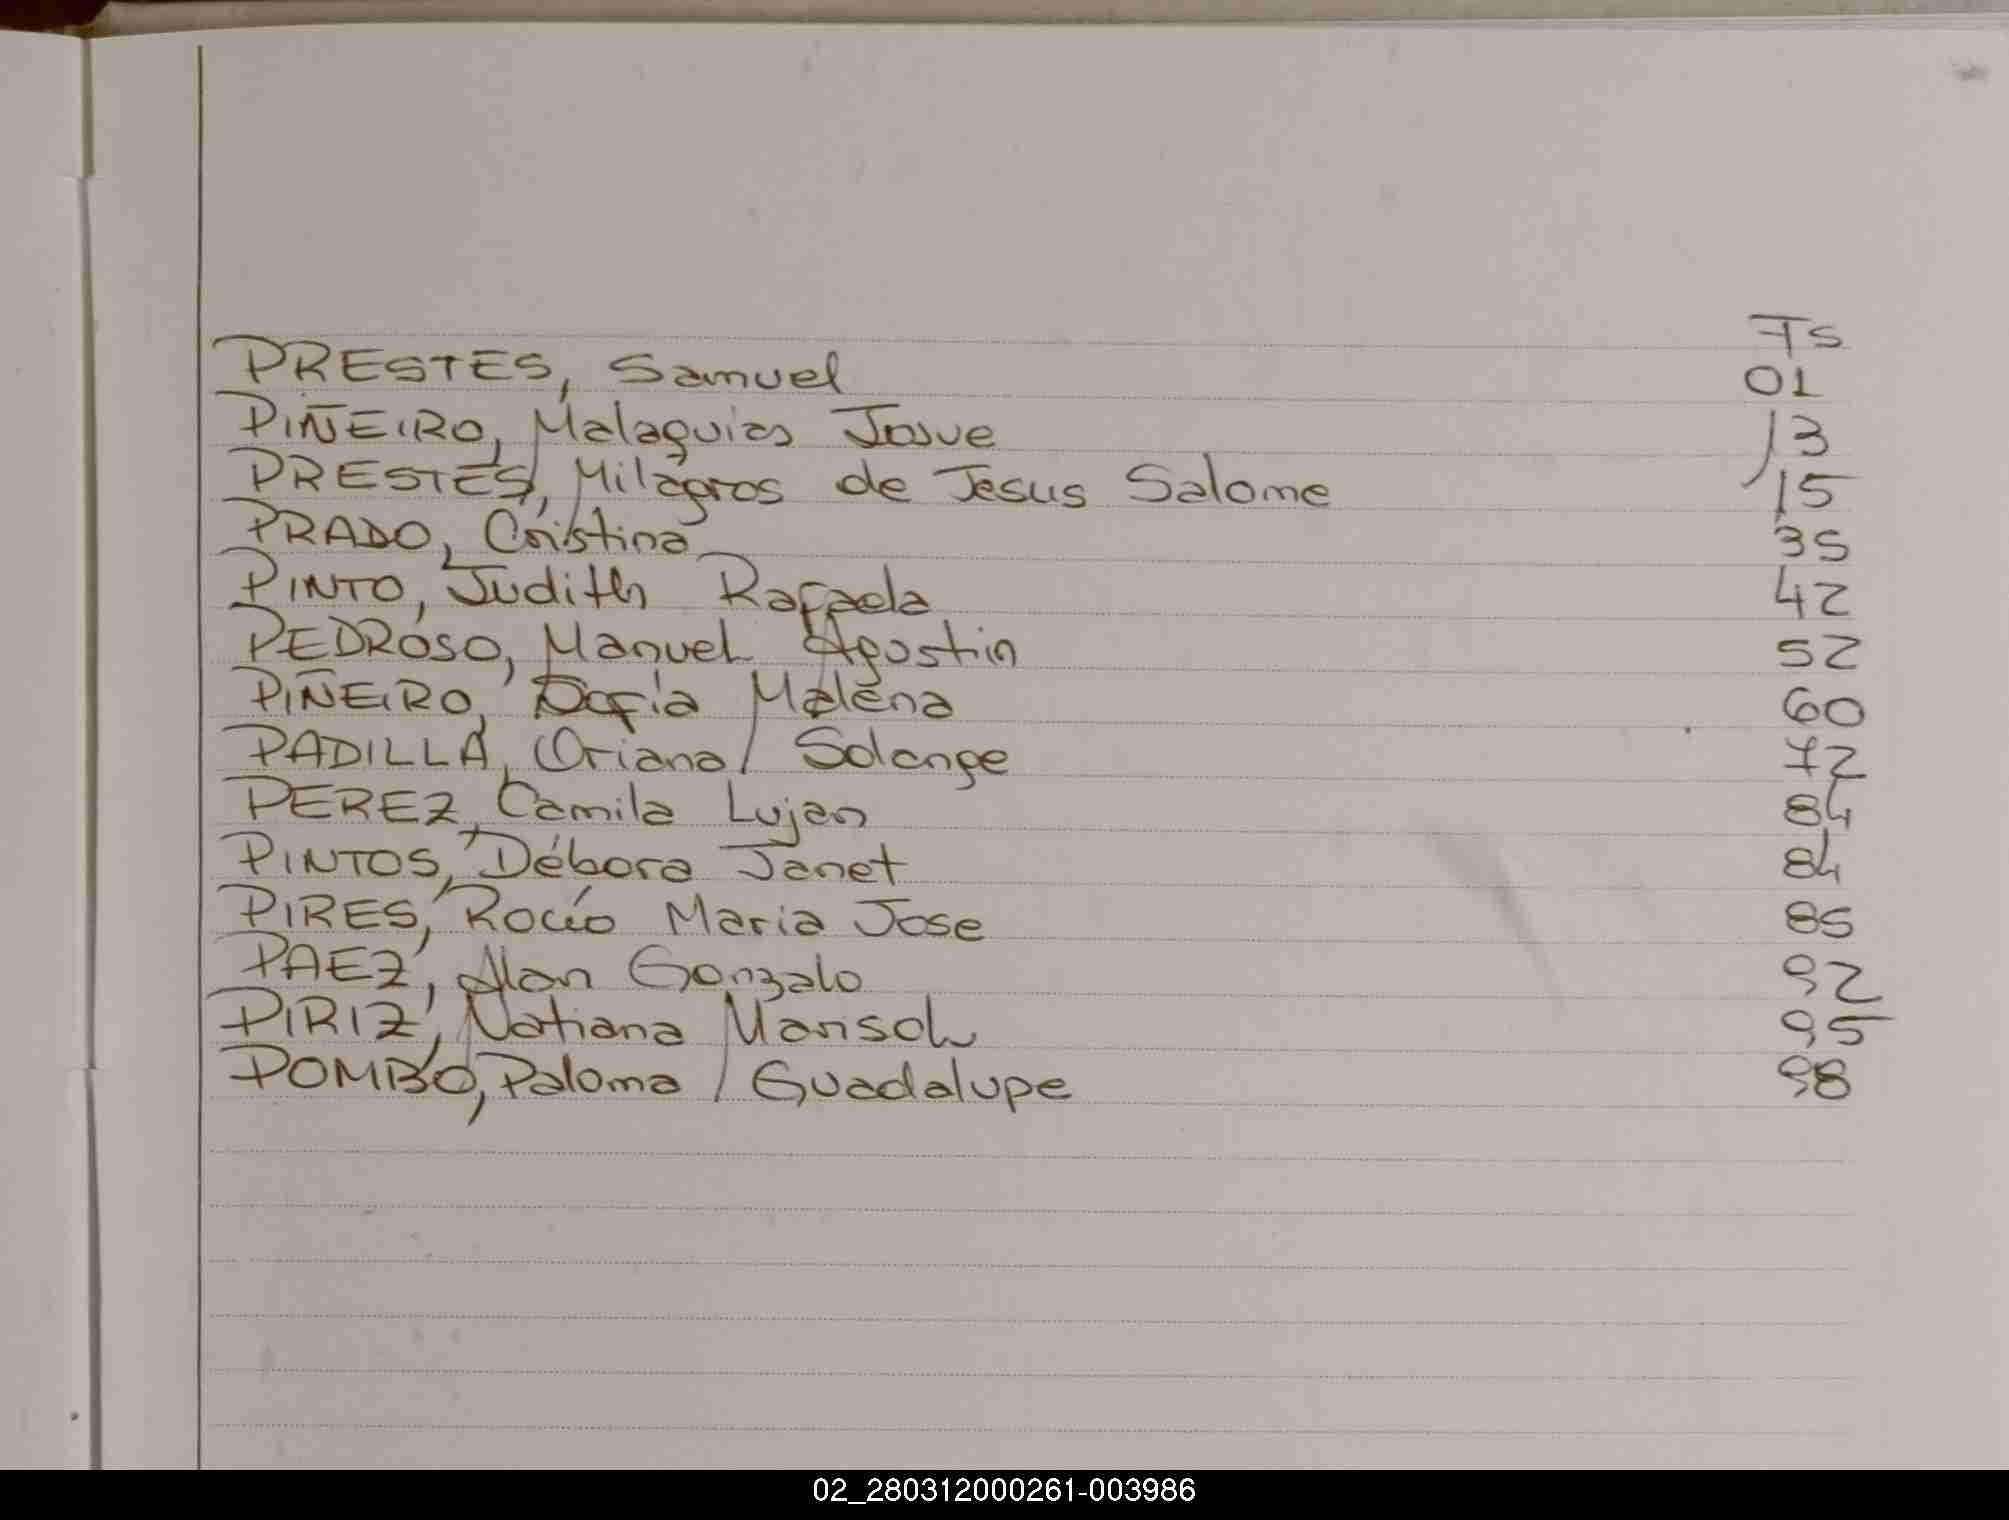 Fs
PRESTES, Samuel 01
PIÑEIRO, Malaquias Josue 13
PRESTES, Milagros de Jesus Salome 15
PRADO, Cristina 35
PINTO, Judith Rafaela 42
PEDROSO, Manuel Agustin 52
PIÑEIRO, Sofía Malena 60
PADILLA, Oriana Solange 72
PEREZ, Camila Lujan 84
PINTOS, Débora Janet 84
PIRES, Rocío Maria Jose 85
PAEZ, Alan Gonzalo 92
PIRIZ, Natiana Marisol 95
POMBO, Paloma Guadalupe 98
02_280312000261-003986